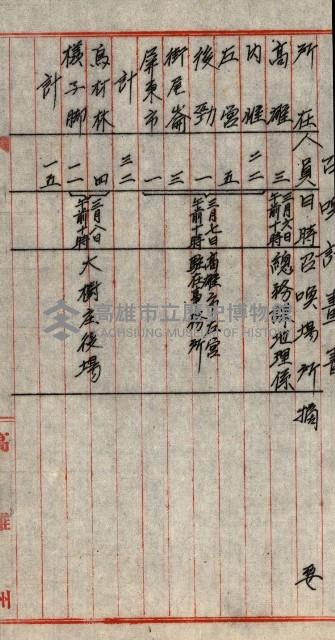 召喚計畫書
所在 人員 日時 召喚場所 摘要
高雄 三 三月六日午前十時 總務課地理係
內惟 二二
左營 五 三月七日午前十時 高雄市左營駐在事務所
後勁 一
街尾崙 三
屏東市 一
計 三二
烏材林 四 三月八日午前十時 大樹庄役場
檨子脚 一一
計 一五
高雄州
高雄市立歷史博物館
KAOHSIUNG MUSEUM OF HISTORY